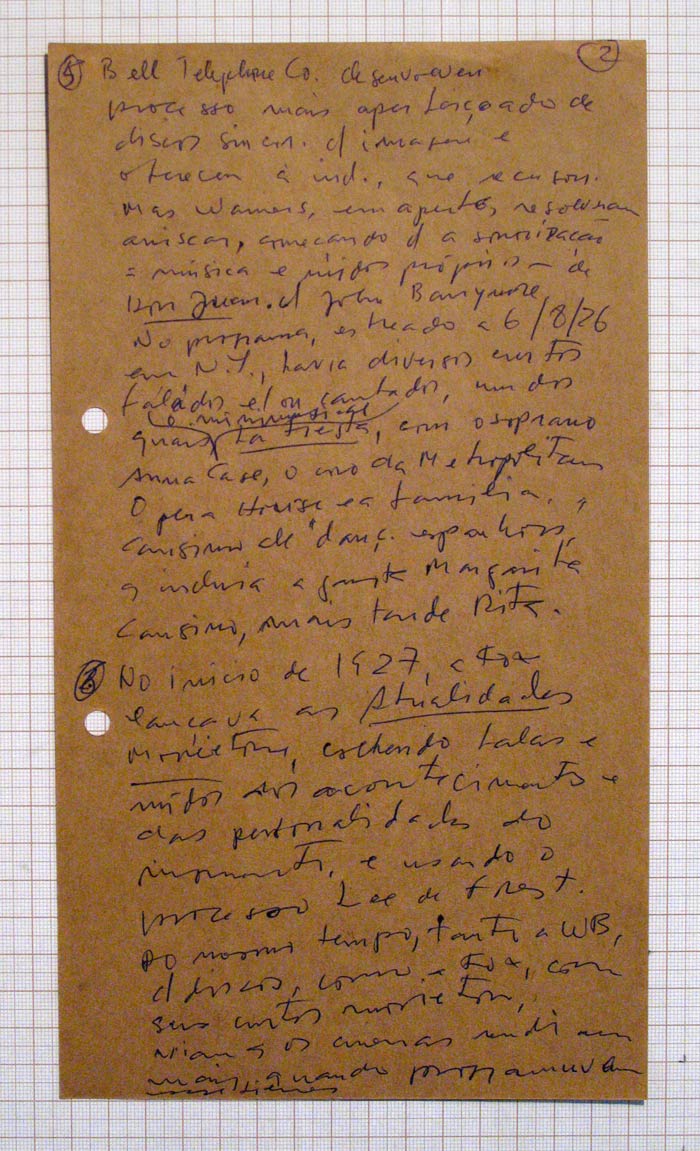 2
5 Bell Telephone Co. desenvolveu
processo mais aperfeiçoado de
discos sincr. c/ imagem e
ofereceu à ind., que recusou.
Mas Warners, em apertos, resolveram
arriscar, começando c/ a sonorização
= música e ruídos próprios – de
Don Juan. c/ John Barrymore
No programa, estreado a 6/8/26
em N.Y., havia diversos curtos
falados e/ou cantados, um dos
o minimusical
quais, La Fiesta, com o soprano
Anna Case, o coro da Metropolitan
Opera House e a família
Cansino de danç. espanhóis,
q incluía a Margarita
Cansino, mais tarde Rita.
6 No início de 1927, a Fox
lançava as Atualidades
Movietone, colhendo falas e
ruídos dos acontecimentos e
das personalidades do
momento, e usando o
processo Lee de Forest.
Ao mesmo tempo, tanto a WB,
c/ discos, como a Fox, com
seus curtos movieton,
viam q os cinemas rendiam
mais, quando programavam